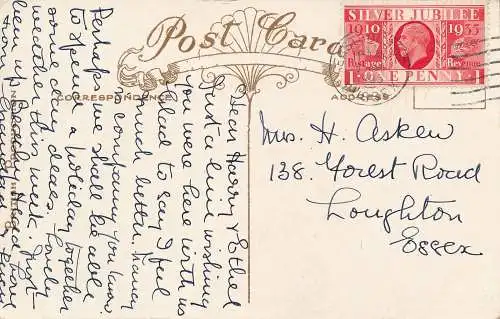 Post Card
SILVER JUBILEE
1910 1935
Postage Revenue
1 ONE PENNY 1
CORRESPONDENCE
ADDRESS
Dear Harry & Ethel
Just a line wishing
you were here with us
Glad to say I feel
much better. Fancy
in company you know
Perhaps we shall be able
to spend a holiday together
some day dears. Lovely
weather this week. Just
been up Beachy Head
Mrs. H. Askew
138, Forest Road
Loughton
Essex